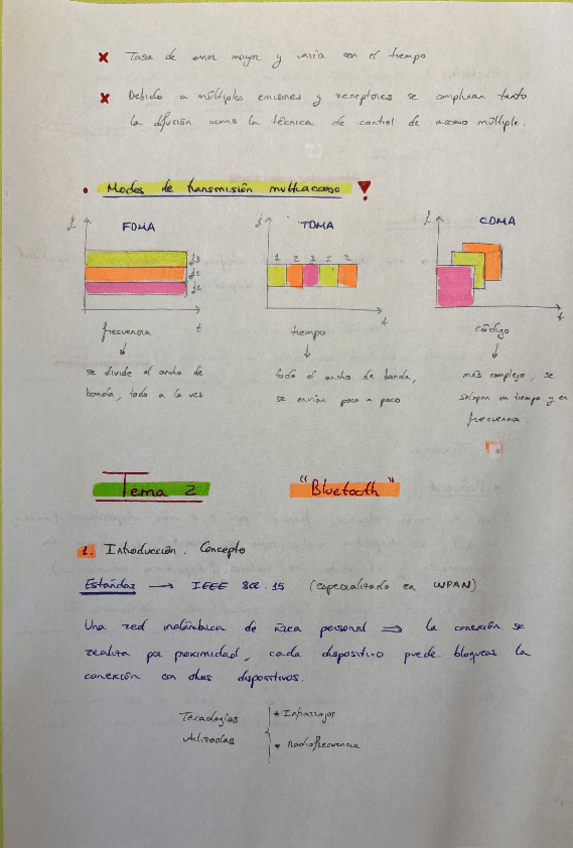 ✗ Tasa de error mayor y varía con el tiempo
✗ Debido a múltiples emisores y receptores se complican tanto
la difusión como la técnica de control de acceso múltiple.
• Modos de transmisión multiacceso !
f FDMA
f3
f2
f1
t
frecuencia
↓
se divide el ancho de
banda, todo a la vez
f TDMA
1 2 3 1 2
t
tiempo
↓
todo el ancho de banda,
se envían poco a poco
f CDMA
t
código
↓
más complejo, se
solapan en tiempo y en
frecuencia.
Tema 2 "Bluetooth"
1. Introducción. Concepto
Estándar → IEEE 802.15 (especializado en WPAN)
Una red inalámbrica de área personal ⇒ la conexión se
realiza por proximidad, cada dispositivo puede bloquear la
conexión con otros dispositivos.
Tecnologías
utilizadas
* Infrarrojos
* Radiofrecuencia